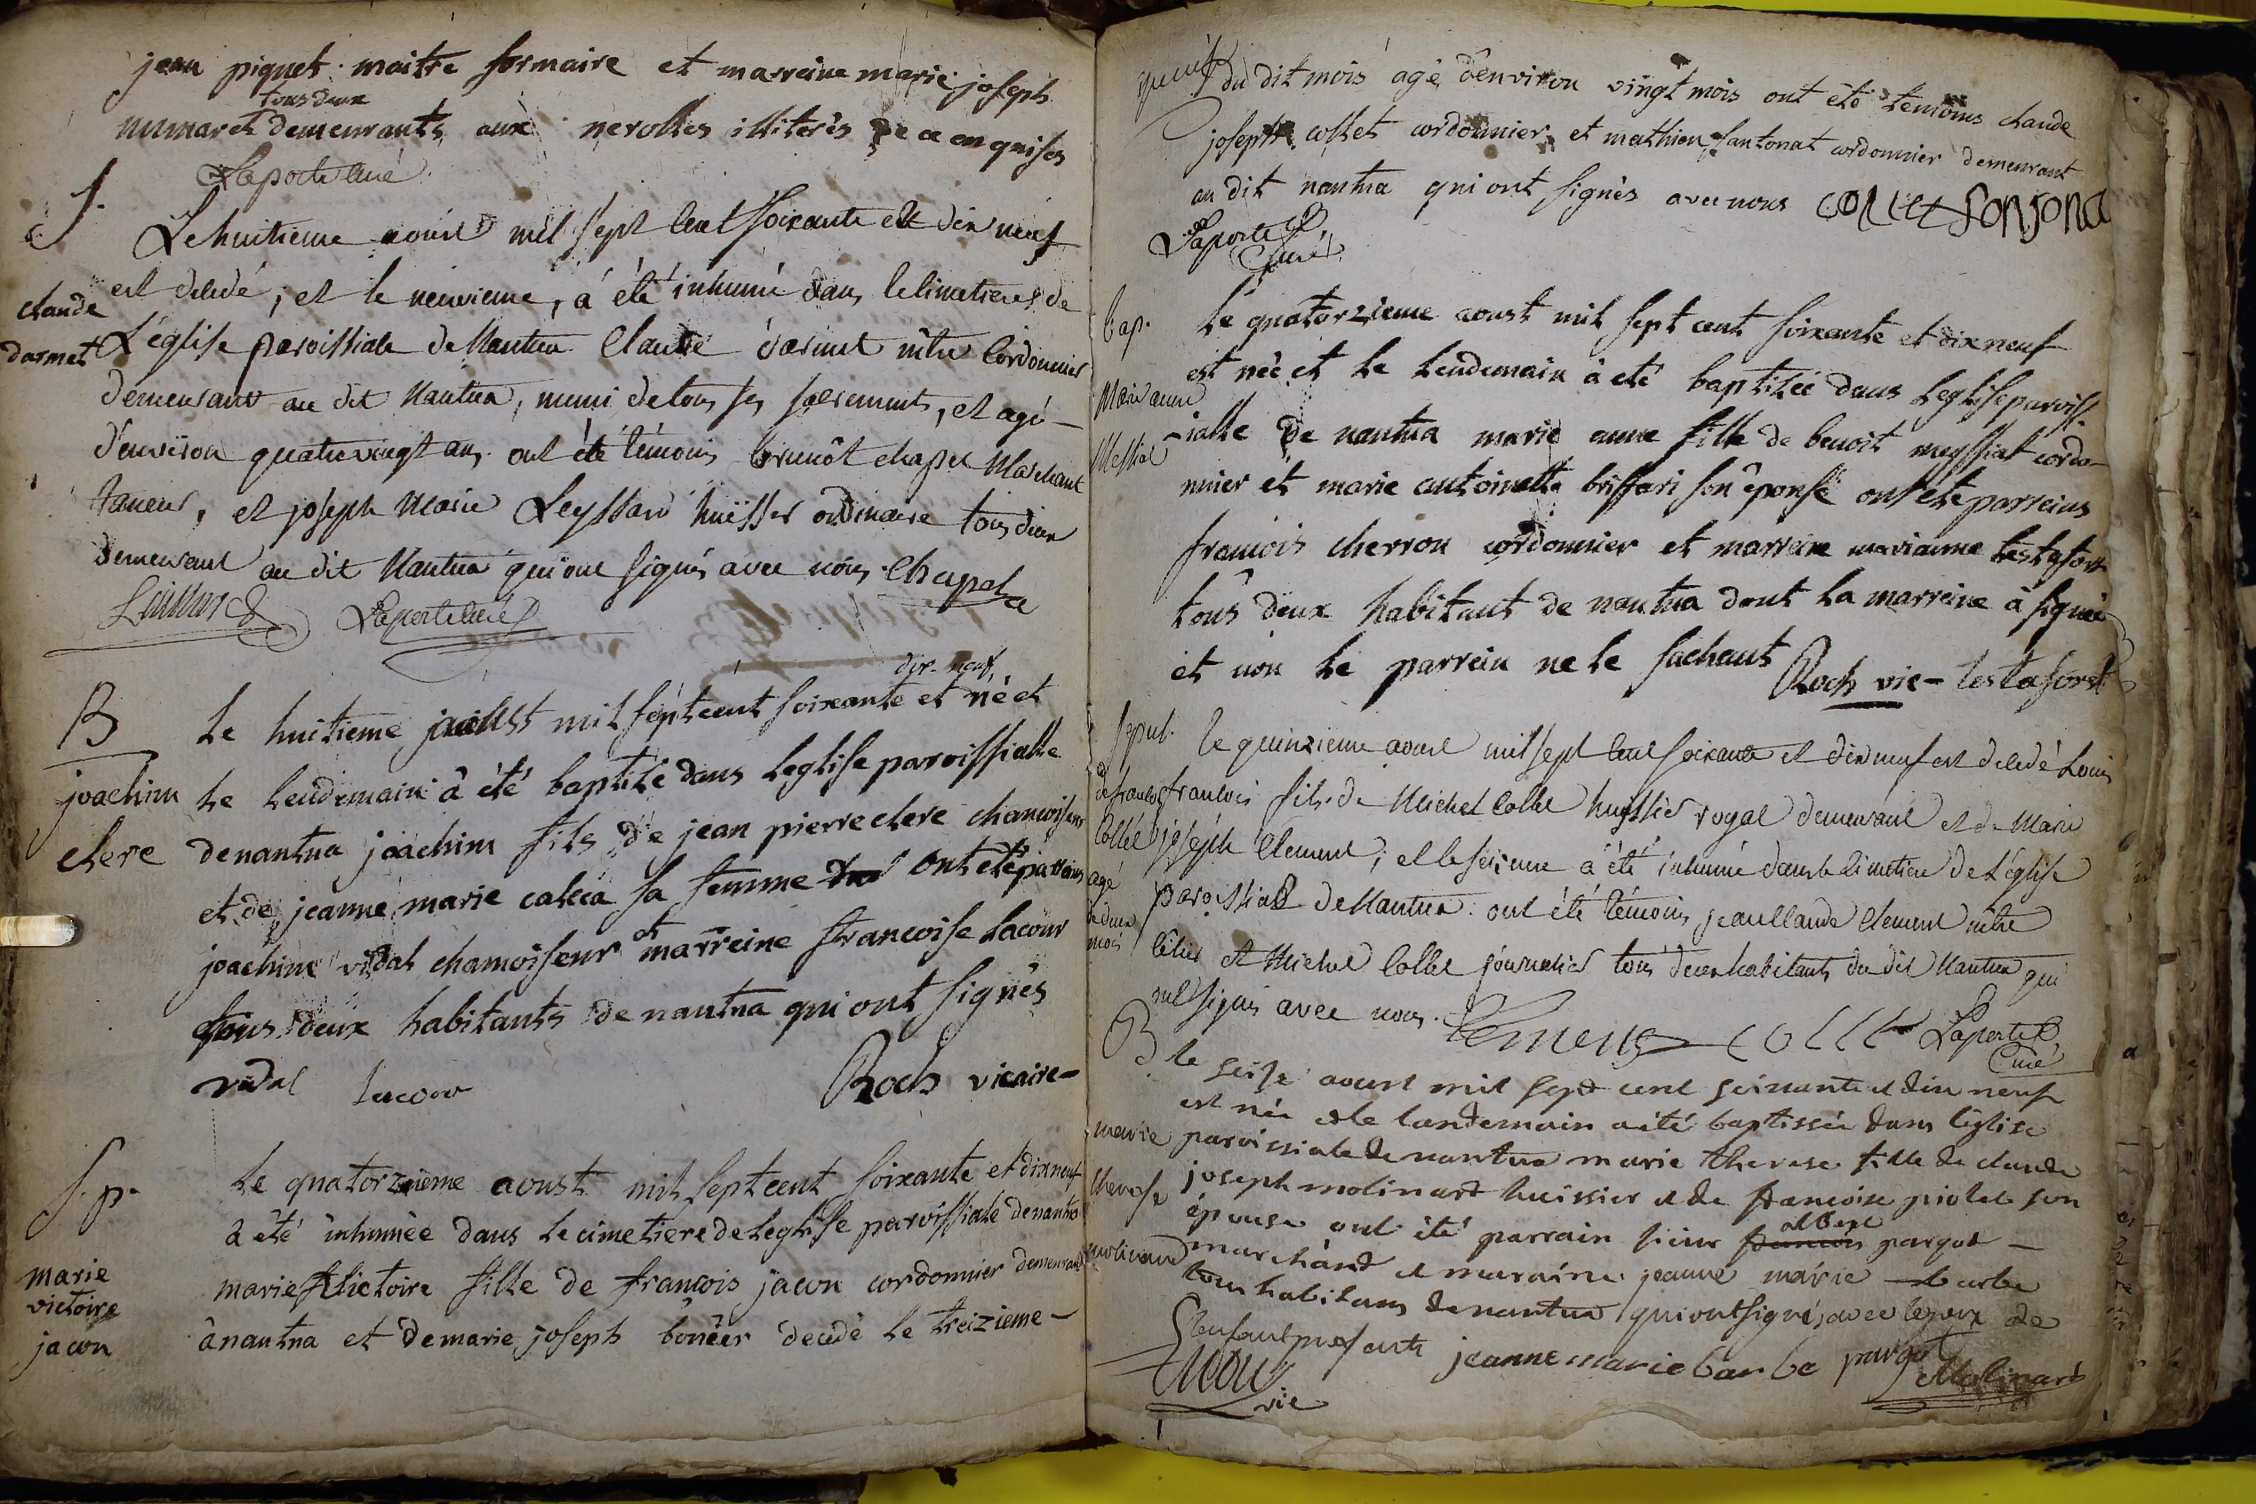 jean piquet maitre formaire et marreine marie joseph
tous deux
humaret demeurants aux nerolles illiterés de ce enquises
Laporte curé
S.
Le huitieme aoust mil sept cent soixante et dix neuf
est decedé, et le neuvieme, a été inhumé dans le cimetiere de
claude
darmet
L'église paroissiale de Nantua Claude darmet mtre Cordonnier
demeurant au dit Nantua, muni de tous ses sacrements, et agé
d'environ quatrevingt ans. ont été témoins benoît chapel Marchant
Taneur, et joseph Marie Leyssard huïssier ordinaire tous deux
demeurant au dit Nantua qui ont signés avec nous. Chapel
Leissard Laporte curé
dix-neuf,
B
Le huitieme aoust mil sept cent soixante et né et
joachim
clere
le lendemain â été baptisé dans leglise paroissialle
de nantua joachim fils de jean pierre clere chamoiseur
et de jeanne marie calcia sa femme ont été parreins
joachim vidal chamoiseur et marreine francoise lacour
tous deux habitants de nantua qui ont signés
vidal lacour Roch vicaire
S. p.
Le quatorzieme aoust mil sept cent soixante et dix neuf
a été inhumée dans le cimetiere de leglise paroissiale de nantua
marie
victoire
jacon
marie Victoire fille de francois jacon cordonnier demeurant
ânantua et de marie joseph bonéer decedé le treizieme
du dit mois agé d'environ vingt mois ont été temoins claude
joseph collet cordonnier et mathieu santonat cordonnier demeurant
au dit nantua qui ont signés avec nous collet sonsona
Laporte
Curé
bap.
Le quatorzieme aoust mil sept cent soixante et dix neuf
est née et le lendemain â eté baptisée dans leglise paroiss.
Marie anne
Messiat
ialle de nantua marie anne fille de benoit meyssiat cordo-
nnier et marie antoinette brissari son êpouse ont eté parreins
francois cherron cordonnier et marreine marianne testafort
toûs deux habitant de nantua dont la marreine â signée
et non le parrein ne le sachant Roch vic- testafort
sepul.
le quinzieme aoust mil sept cent soixante et dix neuf est decedé Louis
de francois
Collet
agé
de deux
mois
francois fils de Michel Collet huissier royal demeurant et de Marie
joseph Clement, et le seizieme a été inhumé dans le Cimetiere de L'église
paroissiale de Nantua. ont été témoins jean Claude Clement mtre
et Michel Collet journalier tous deux habitants du dit Nantua qui
ont signés avec nous. Clement collet Laporte
Curé
B
le seise aoust mil sept cent soixante et dix neuf
est née et le landemain a été baptissée dans l'église
marie
therese
molinard
paroissiale de nantua marie therese fille de claude
joseph molinard huissier et de francoise piolet son
épouse ont été parrain sieur francois albert pargot
marchand et maraine jeanne marie barbe
tous habitans de nantua qui ont signé, avec le pere de
l'enfant présents jeanne marie barbe pargot Molinard
vic